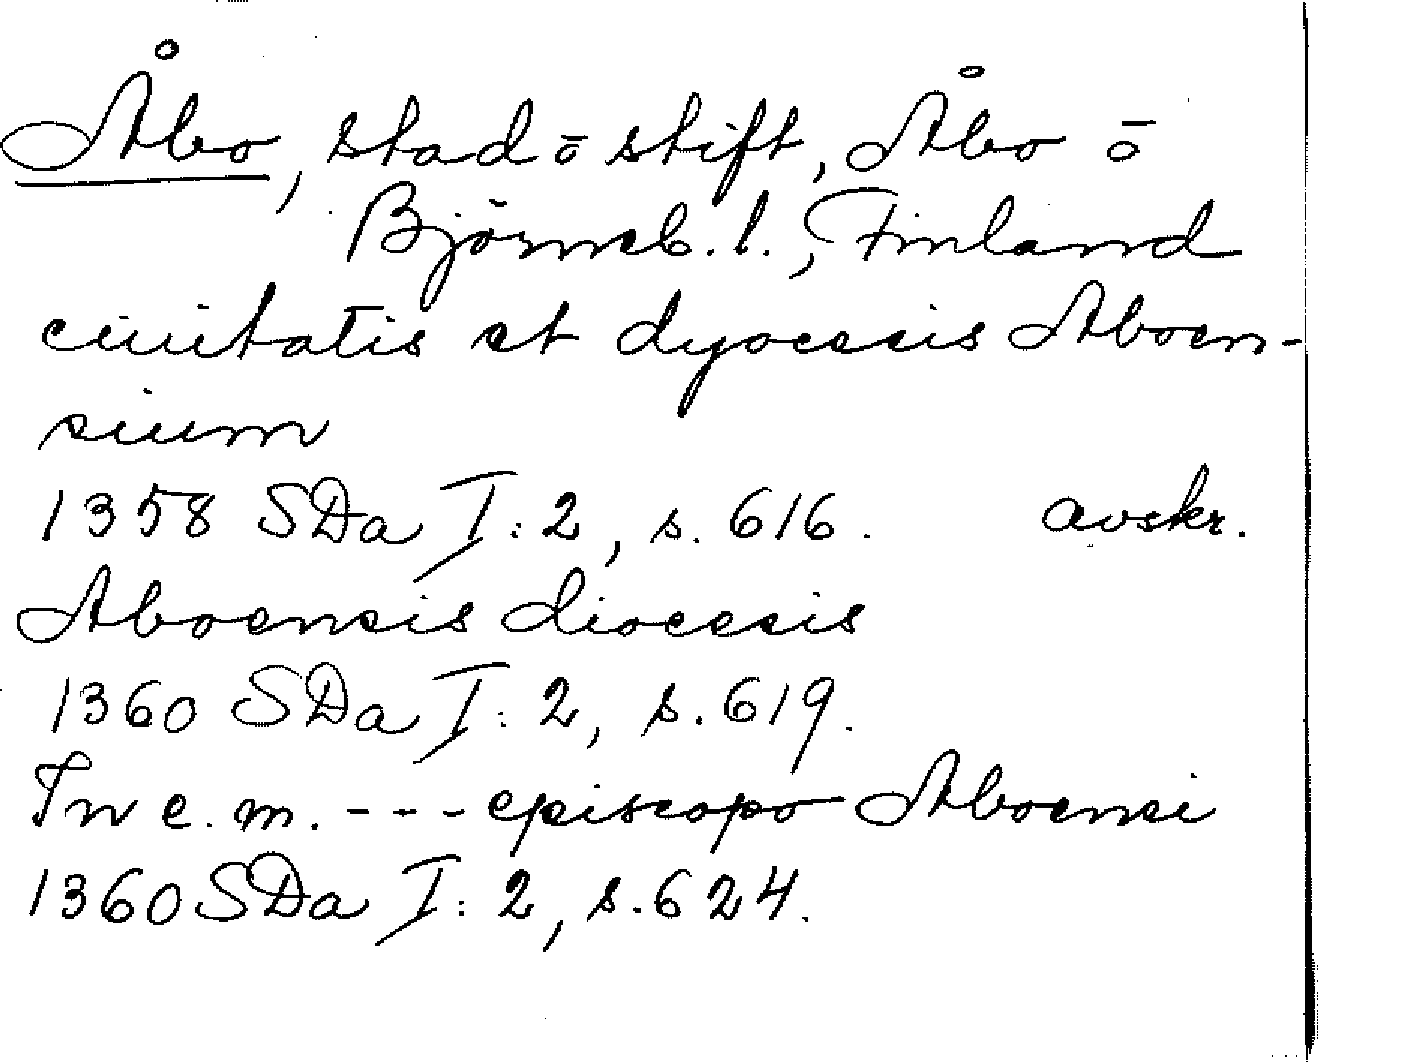 Åbo, stad ō stift, Åbo ō
Björneb. l., Finland
ciuitatis et dyocesis Aboen-
sium
1358 SDa I:2, s. 616. avskr.
Aboensis diocesis
1360 SDa I:2, s. 619.
In e. m. --- episcopo Aboensi
1360 SDa I:2, s. 624.